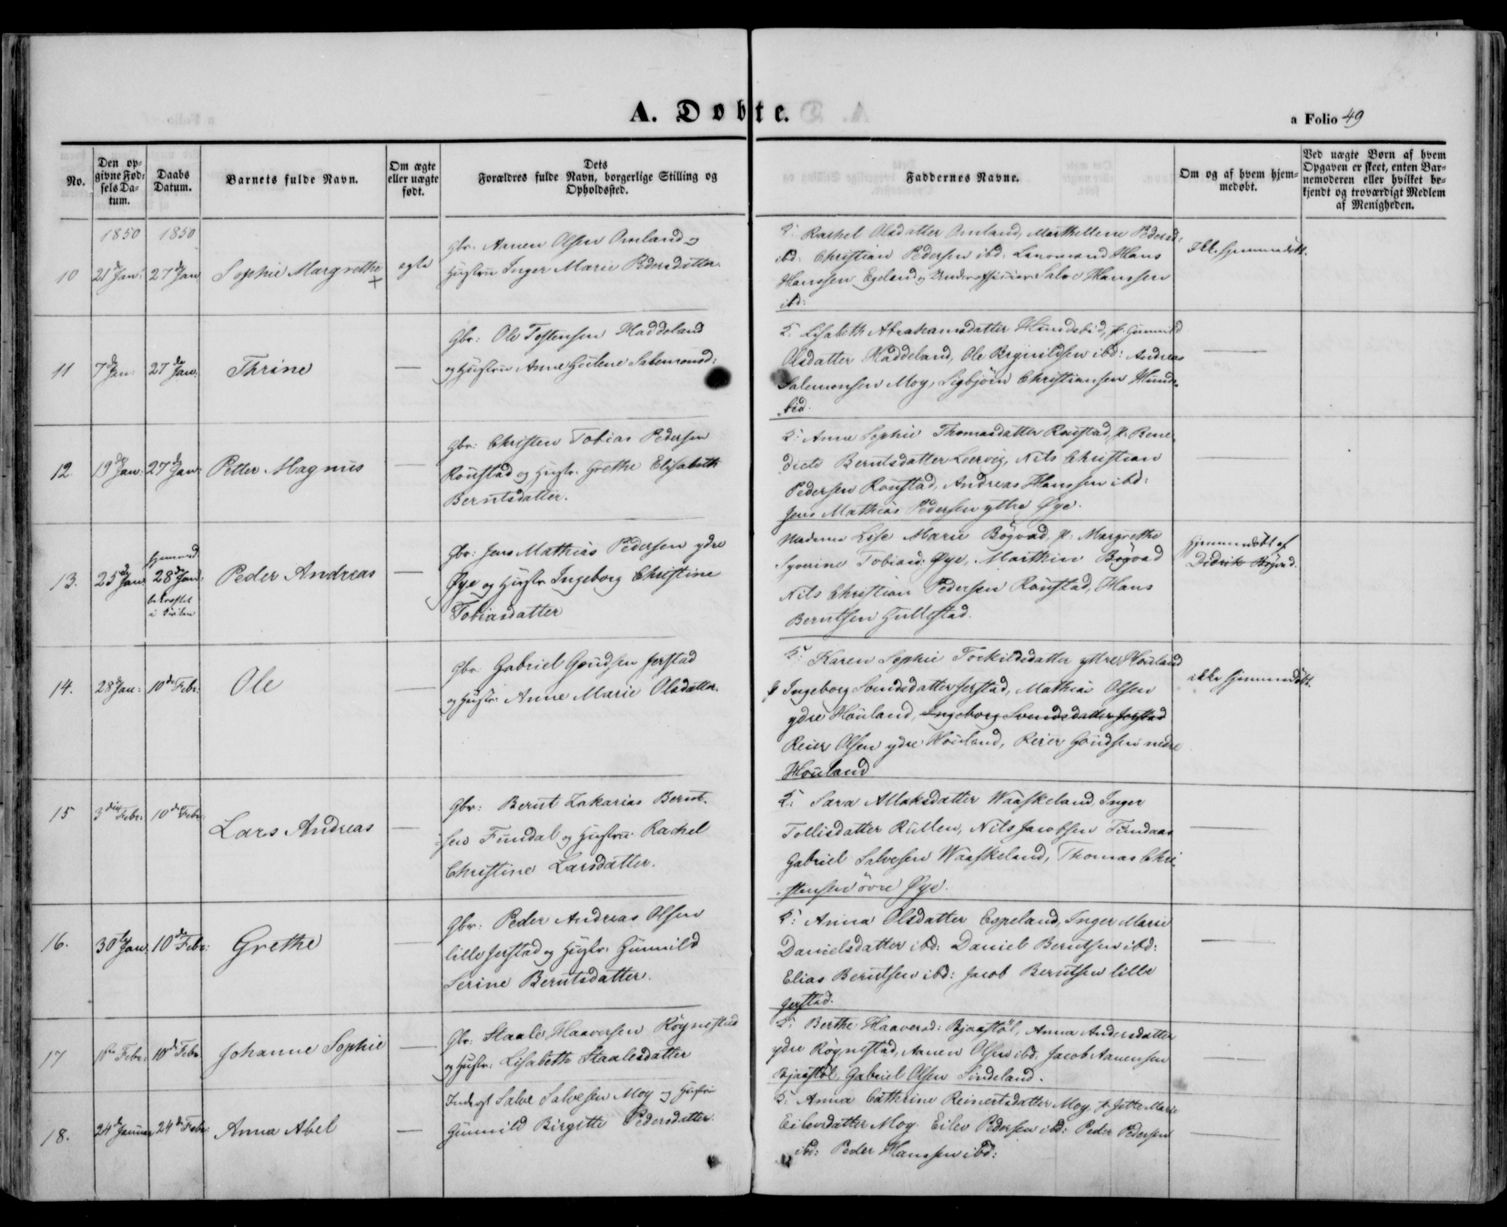 A. Døbte.
a Folio 49
No.
Den op-
givne Fød-
sels Da-
tum.
Daabs
Datum.
Barnets fulde Navn.
Om ægte
eller uægte
født.
Dets
Forældres fulde Navn, borgerlige Stilling og
Opholdssted.
Faddernes Navne.
Om og af hvem hjem-
medøbt.
Ved uægte Børn af hvem
Opgaven er skeet, enten Bar-
nemoderen eller hvilket be-
kjendt og troværdigt Medlem
af Menigheden.
1850 1850
10 21 Jan: 27 de Jan Sophie Margrethe ægte
Gbr. Aanen Olsen Omland og
Hustru Inger Marie Pedersdatter
F: Rachel Olsdatter Omland, Marthe Pedersd:
ibd: Christian Pedersen ibd: Hans
Hanssen Egeland, Underofficier Salve Hanssen
ibd:
Ikke hjemmedøbt.
11 7 de Jan 27 de Jan. Thrine —
Gbr: Ole Tostensen Haddeland
og Hustru Anne Helene Salomonsd:
F. Elisabeth Abrahamsdatter Hundsbid, p: Gunnild
Olsdatter Haddeland, Ole ibd: Andreas
Salemonsen Moy, Sigbjørn Christiansen Hunds-
bid.
12 19 de Jan: 27 de Jan: Petter Magnus —
Gbr: Christen Tobias Pedersen
Roustad og Hustr. Grethe Elisabeth
Berntsdatter.
F: Anne Sophie Thomasdatter Roustad, p: Bene-
dicte Berntsdatter Lervig, Nils Christian
Pedersen Roustad, Andreas Hanssen ibd:
Jens Mathias Pedersen ytre Øye.
13. 25 de Jan 28 de Jan: Peder Andreas —
Gbr: Jens Mathias Pedersen ydre
Øye og Hustr Ingeborg Christine
Tobiasdatter
Madame Lise Marie Bøgvad, p: Margrethe
Tobiasd. Øye, Bøgvad
Nils Christian Pedersen Roustad, Hans
Berntsen Gullestad.
hjemmedøbt af
Didrik Bøgvad.
14. 28 Jan: 10 de Febr: Ole —
Gbr. Gabriel Gundsen Jerstad
og Hustr. Anne Marie Olsdatter.
F: Karen Sophie Torkildsdatter Houland
p Ingeborg Svendsdatter Jerstad, Mathias Olsen
ydre Houland, Ingeborg Svendsdatter Jerstad
Reier Olsen ydre Houland, Reier Gundsen nedre
Houland
ikke hjemmedøbt.
15 3 die Febr: 10 de Febr. Lars Andreas —
Gbr: Bernt Zakarias Bernt-
sen Fundal og Hustru Rachel
Christine Larsdatter.
F: Sara Allaksdatter Waaskeland, Inger
Tollisdatter Rullen, Nils Jacobsen
Gabriel Salvesen Waaskeland, Thomas Chri-
stensen øvre Øye.
16. 30 de Jan. 10 de Febr: Grethe —
Gbr: Peder Andreas Olsen
lille Jerstad og Hustr: Gunnild
Serine Berntsdatter.
F: Anna Olsdatter Egeland, Inger Marie
Danielsdatter ibd: Daniel Berntsen ibd:
Elias Berntsen ibd: Jacob Berntsen lille
Jerstad.
17 1 ste Febr: 10 de Febr Johanne Sophie —
Gbr. Staale Haaversen Røynestad
og Hustr: Lisabeth Staalesdatter
F: Berthe Haaversd: Bjaastøl, Anna Andersdatter
ydre Røynestad, Aanen Olsen ibd: Jacob Aanensen
Bjaastøl, Gabriel Olsen Sindeland.
18. 24 de Januar 24 de Febr Anna Abel —
Inderst Salve Salvesen Moy og Hustru
Gunnild Birgitte Pedersdatter
F: Anna Cathrine Reinertsdatter Moy, p: Jette Marie
Eilevsdatter Moy, Eilev Pedersen ibd: Peder Pedersen
ibd: Peder Hanssen ibd: